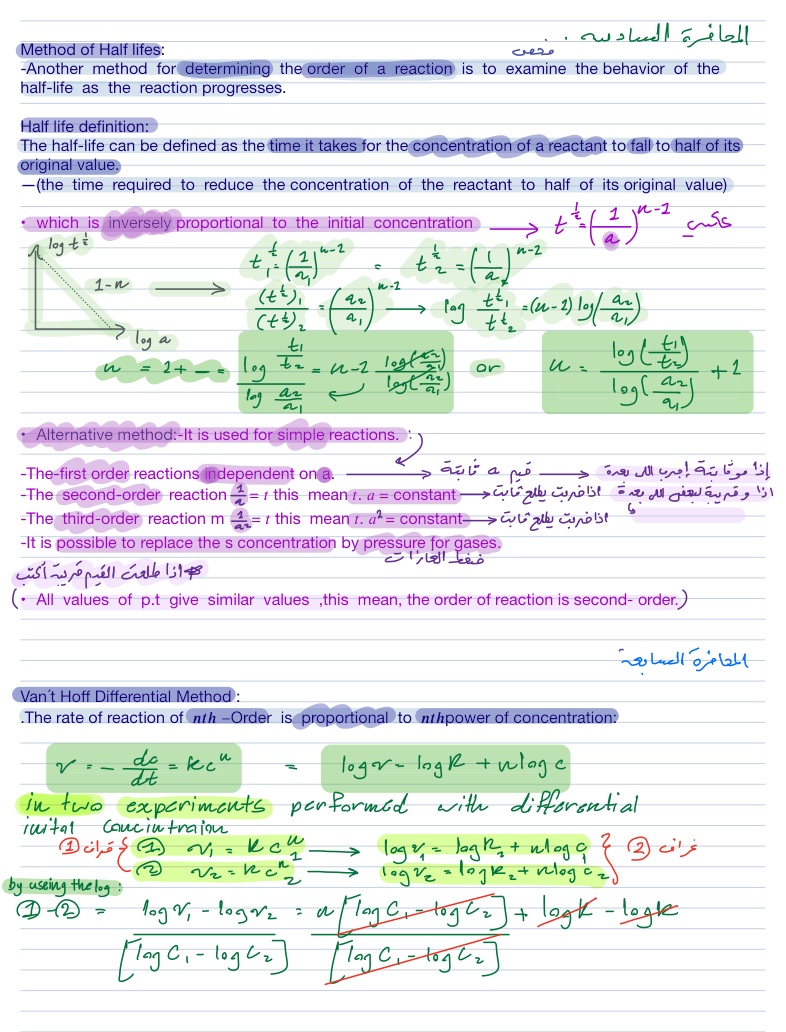 المحاضرة السادسة ..
Method of Half lifes:
-Another method for determining the order of a reaction is to examine the behavior of the
half-life as the reaction progresses.
Half life definition:
The half-life can be defined as the time it takes for the concentration of a reactant to fall to half of its
original value.
—(the time required to reduce the concentration of the reactant to half of its original value)
• which is inversely proportional to the initial concentration → t^½ = (1/a)^n-1
log t^½
1-n → t₁^½ = (1/a₁)^n-1 = t₂^½ = (1/a₂)^n-1
(t^½)₁/(t^½)₂ = (a₂/a₁)^n-1 → log t^½₁/t^½₂ = (n-1) log(a₂/a₁)
log a
n = 1+ — = log t₁/t₂ / log a₂/a₁ = n-1 log(a₂/a₁)/log(a₂/a₁) or n = log(t₁/t₂)/log(a₂/a₁) + 1
• Alternative method:-It is used for simple reactions. :
-The-first order reactions independent on a. → قيم a ثابتة → إذا مو ثابتة أجرب اللي بعده
-The second-order reaction 1/a = t this mean t. a = constant → اذا ضربت يطلع ثابت اذا و قريبة لبعض اللي بعده
-The third-order reaction m 1/a² = t this mean t. a² = constant → اذا ضربت يطلع ثابت
-It is possible to replace the s concentration by pressure for gases.
ضغط الغازات
اذا طلعت القيم قريبة أكتب
(• All values of p.t give similar values ,this mean, the order of reaction is second- order.)
المحاضرة السابعة
Van´t Hoff Differential Method :
.The rate of reaction of nth –Order is proportional to nthpower of concentration:
v = - dc/dt = kcⁿ = log v = log k + n log c
in two experiments performed with differential
inital concintraion
① فراف { (1) v₁ = kc₁ⁿ → log v₁ = log k₂ + n log c₁ } ② غراف
(2) v₂ = kc₂ⁿ → log v₂ = log k₂ + n log c₂
by useing the log :
①-② = log v₁ - log v₂ = n [log C₁ - log C₂] + log k - log k
[log C₁ - log C₂] [log C₁ - log C₂]